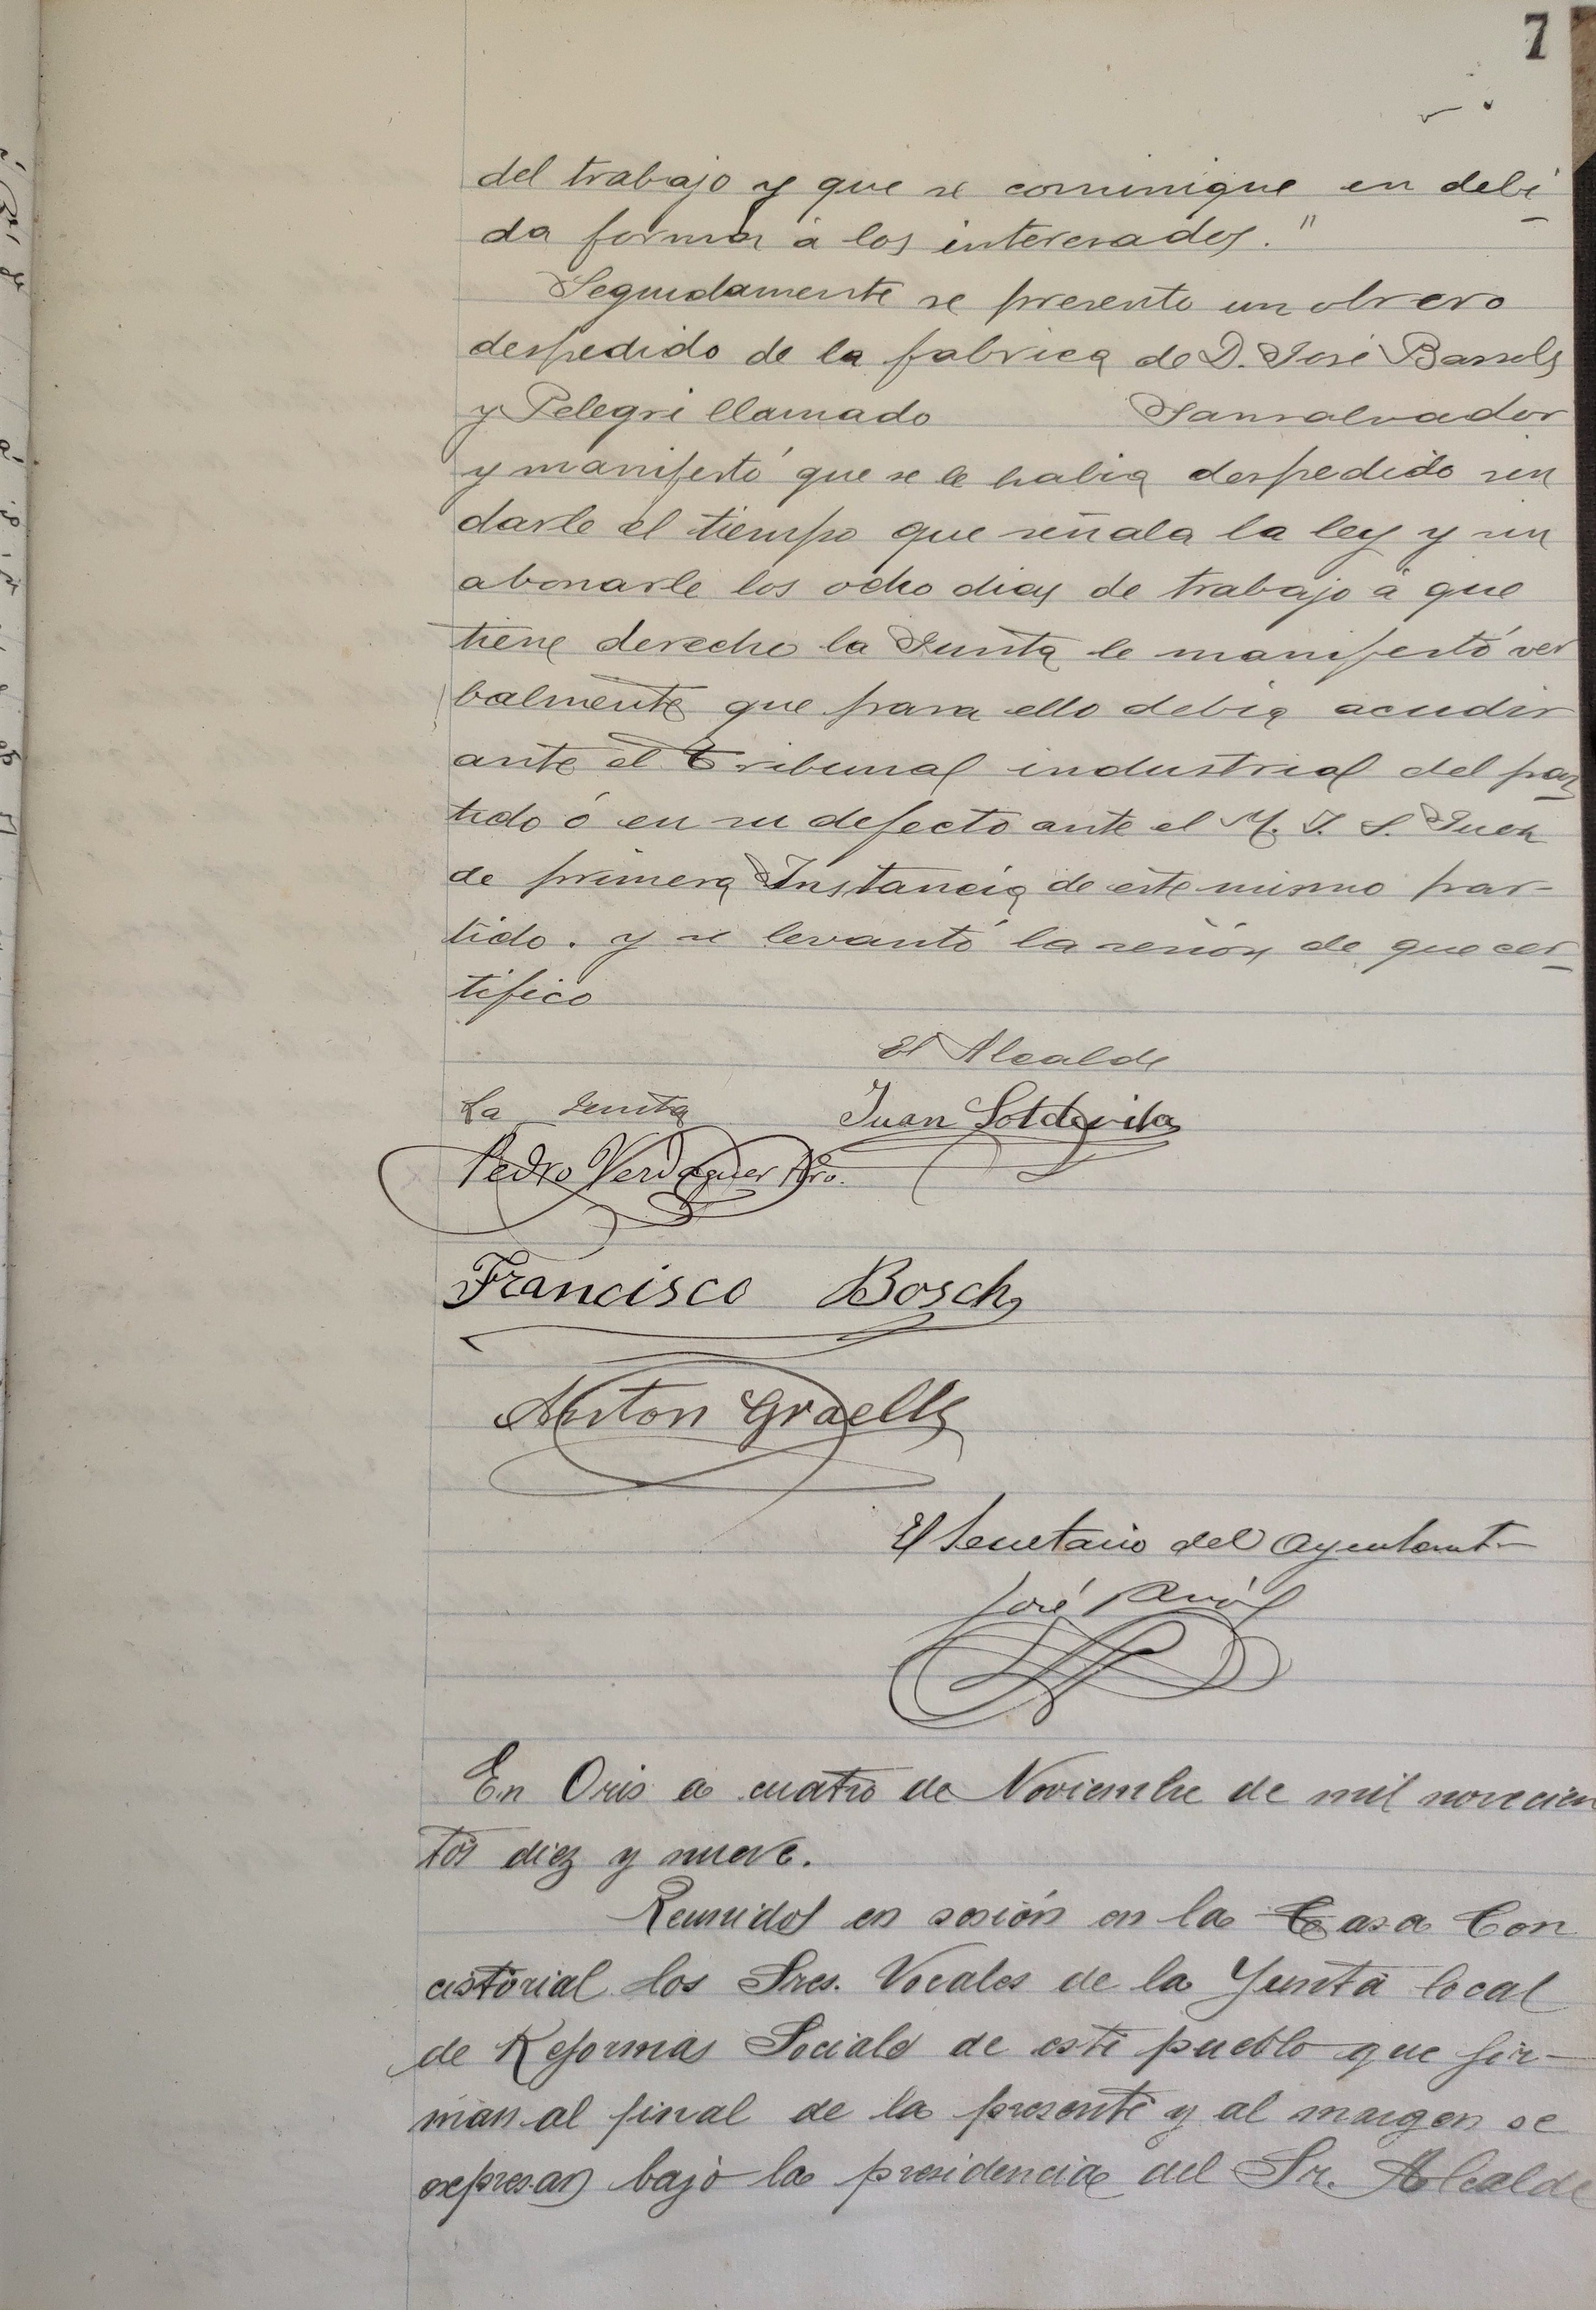 7
del trabajo y que se cominique en debi
da forma á los interesados."
Seguidamente se presento un obrero
despedido de la fabrica de D. José Bassols
y Pelegri llamado Sansalvador
y manifestó que se le habia despedido sin
darle el tiempo que señala la ley y sin
abonarle los ocho dias de trabajo á que
tiene derecho la Junta le manifestó ver
balmente que para ello debia acudir
ante el Tribunal industrial del par
tido ó en su defecto ante el M. I. S. Juez
de primera Instancia de este mismo par-
tido. y se levantó la sesión de que cer-
tifico
El Alcalde
La Junta Juan Soldevila
Pedro Verdaguer Pbro.
Francisco Bosch
Anton Graells
El Secretario del Ayuntamt-
José
En Oris a cuatro de Noviembre de mil novecien
tos diez y nueve.
Reunidos en sesión en la Casa Con
cistorial los Sres. Vocales de la Junta local
de Reformas Sociales de este pueblo que fir-
man al final de la presente y al margen se
expresan bajo la presidencia del Sr. Alcalde